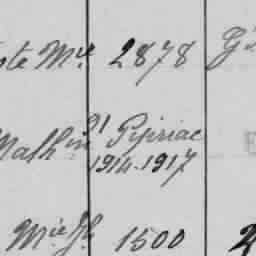 ste Mie 2878 G
Math in 91 Pipriac
1914-1917
Mie Jh 1500 2